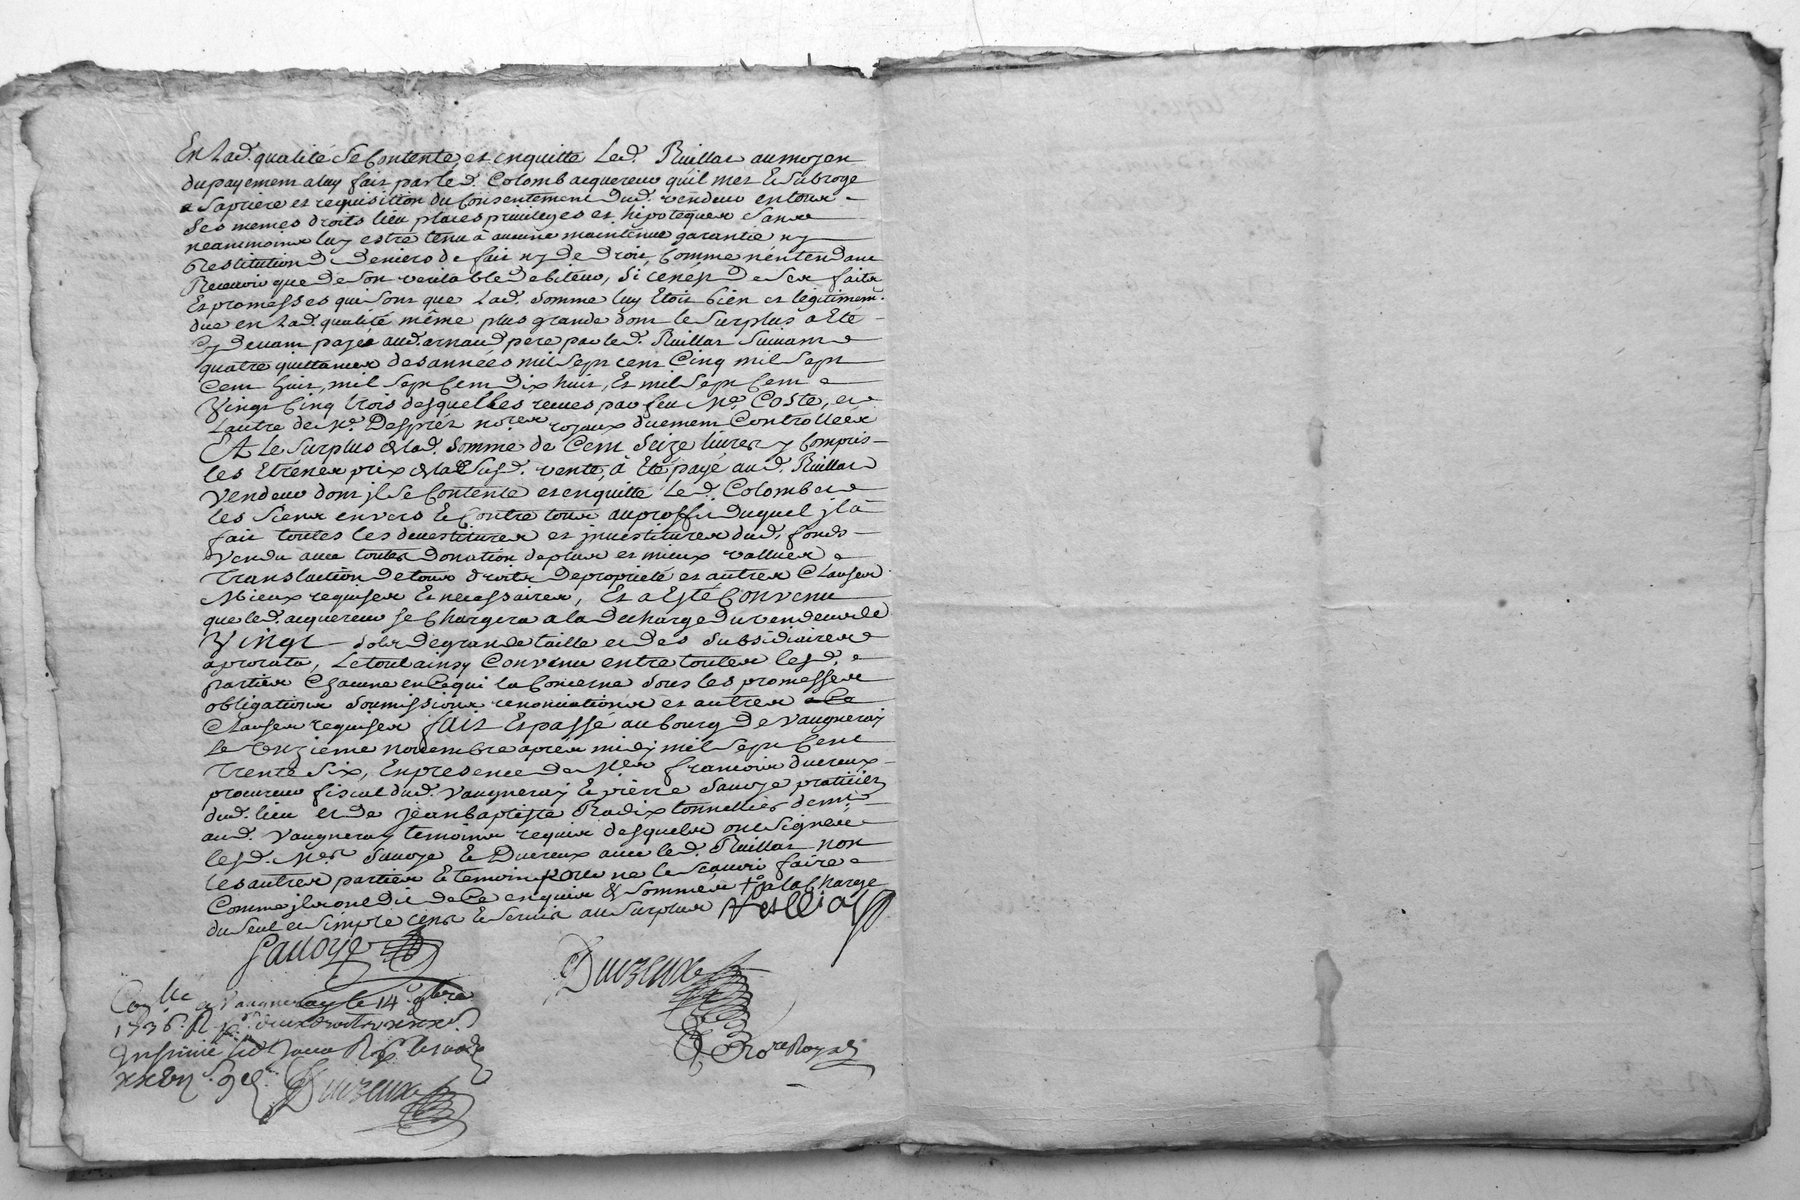 En Lad. qualité se Contente, et enquitte Led. Ruillat aumoyen
dupayement aluy fait parled. Colomb acquereur quil met & subroge
a sapriere et requisition du Consentement dud. vendeur entous
ses memes droits lieu places privileges et hipoteques sans
neanmoins luy estre tenu à aucune maintenue garantie ny
restitution de deniers de fait ny de droit, Comme n'entendant
Recevoir que de son veritable debiteur, si cenest de ses faits
Et promesses qui sont que Lad. somme luy Etoit bien et légitimem.
due en Lad. qualité même plus grande dont le surplus a Eté
cy devant payé aud. arnaud pere par led. Ruillat suivant
quatre quittances des années mil sept cent Cinq mil sept
Cent huit, mil sept Cent dix huit, Et mil sept Cent
Vingt Cinq trois desquelles reçues par feu Me. Coste, et
Lautre de Me. Desprez nores royaux duement Controllées
Et Le surplus de lad. somme de Cent seize livres y Compris
les Etrenes prix de la susd. vente, à Eté payé aud. Ruillat
vendeur dont jl se Contente et enquitte Led. Colomb et
les siens envers & Contre tous auproffit duquel jl a
fait toutes les devestitures et jnvestitures dud. fonds
vendu avec toutes donation deplus et mieux vallue
Translation detous droits depropriété et autres Clauses
Mieux requises & necessaires, Et a Esté Convenu
que led. acquereur se Chargera ala decharge du vendeur de
Vingt sols de grande taille et des subsidiaires
aprorata, Letout ainsy Convenu entre toutes lesd.
parties Chacune en Cequi la Concerne sous les promesses
obligations soumissions renonciations et autres
Clauses requises fait Et passé au bourg de vaugneray
Le onzieme novembre aprés midy mil sept Cent
Trente six, En presence de Mes francois ducreux
procureur fiscal dud. vaugneray & pierre sauoye praticien
dud. lieu et de jean baptiste Radix tonnellier demt
aud. vaugneray temoins requis desquels ont signé
lesd. Mes sauoye & Ducreux avec led. Ruillat non
les autres parties & temoin pour ne le scavoir faire
Comme jls ont dit de Ce enquis & sommés + a la Charge
du seul et simple cens & servis au surplus
Sauoye
Ducreux
Conlle a Vaugneray le 14e 9bre
1736. R
Nore Royal
Ducreux